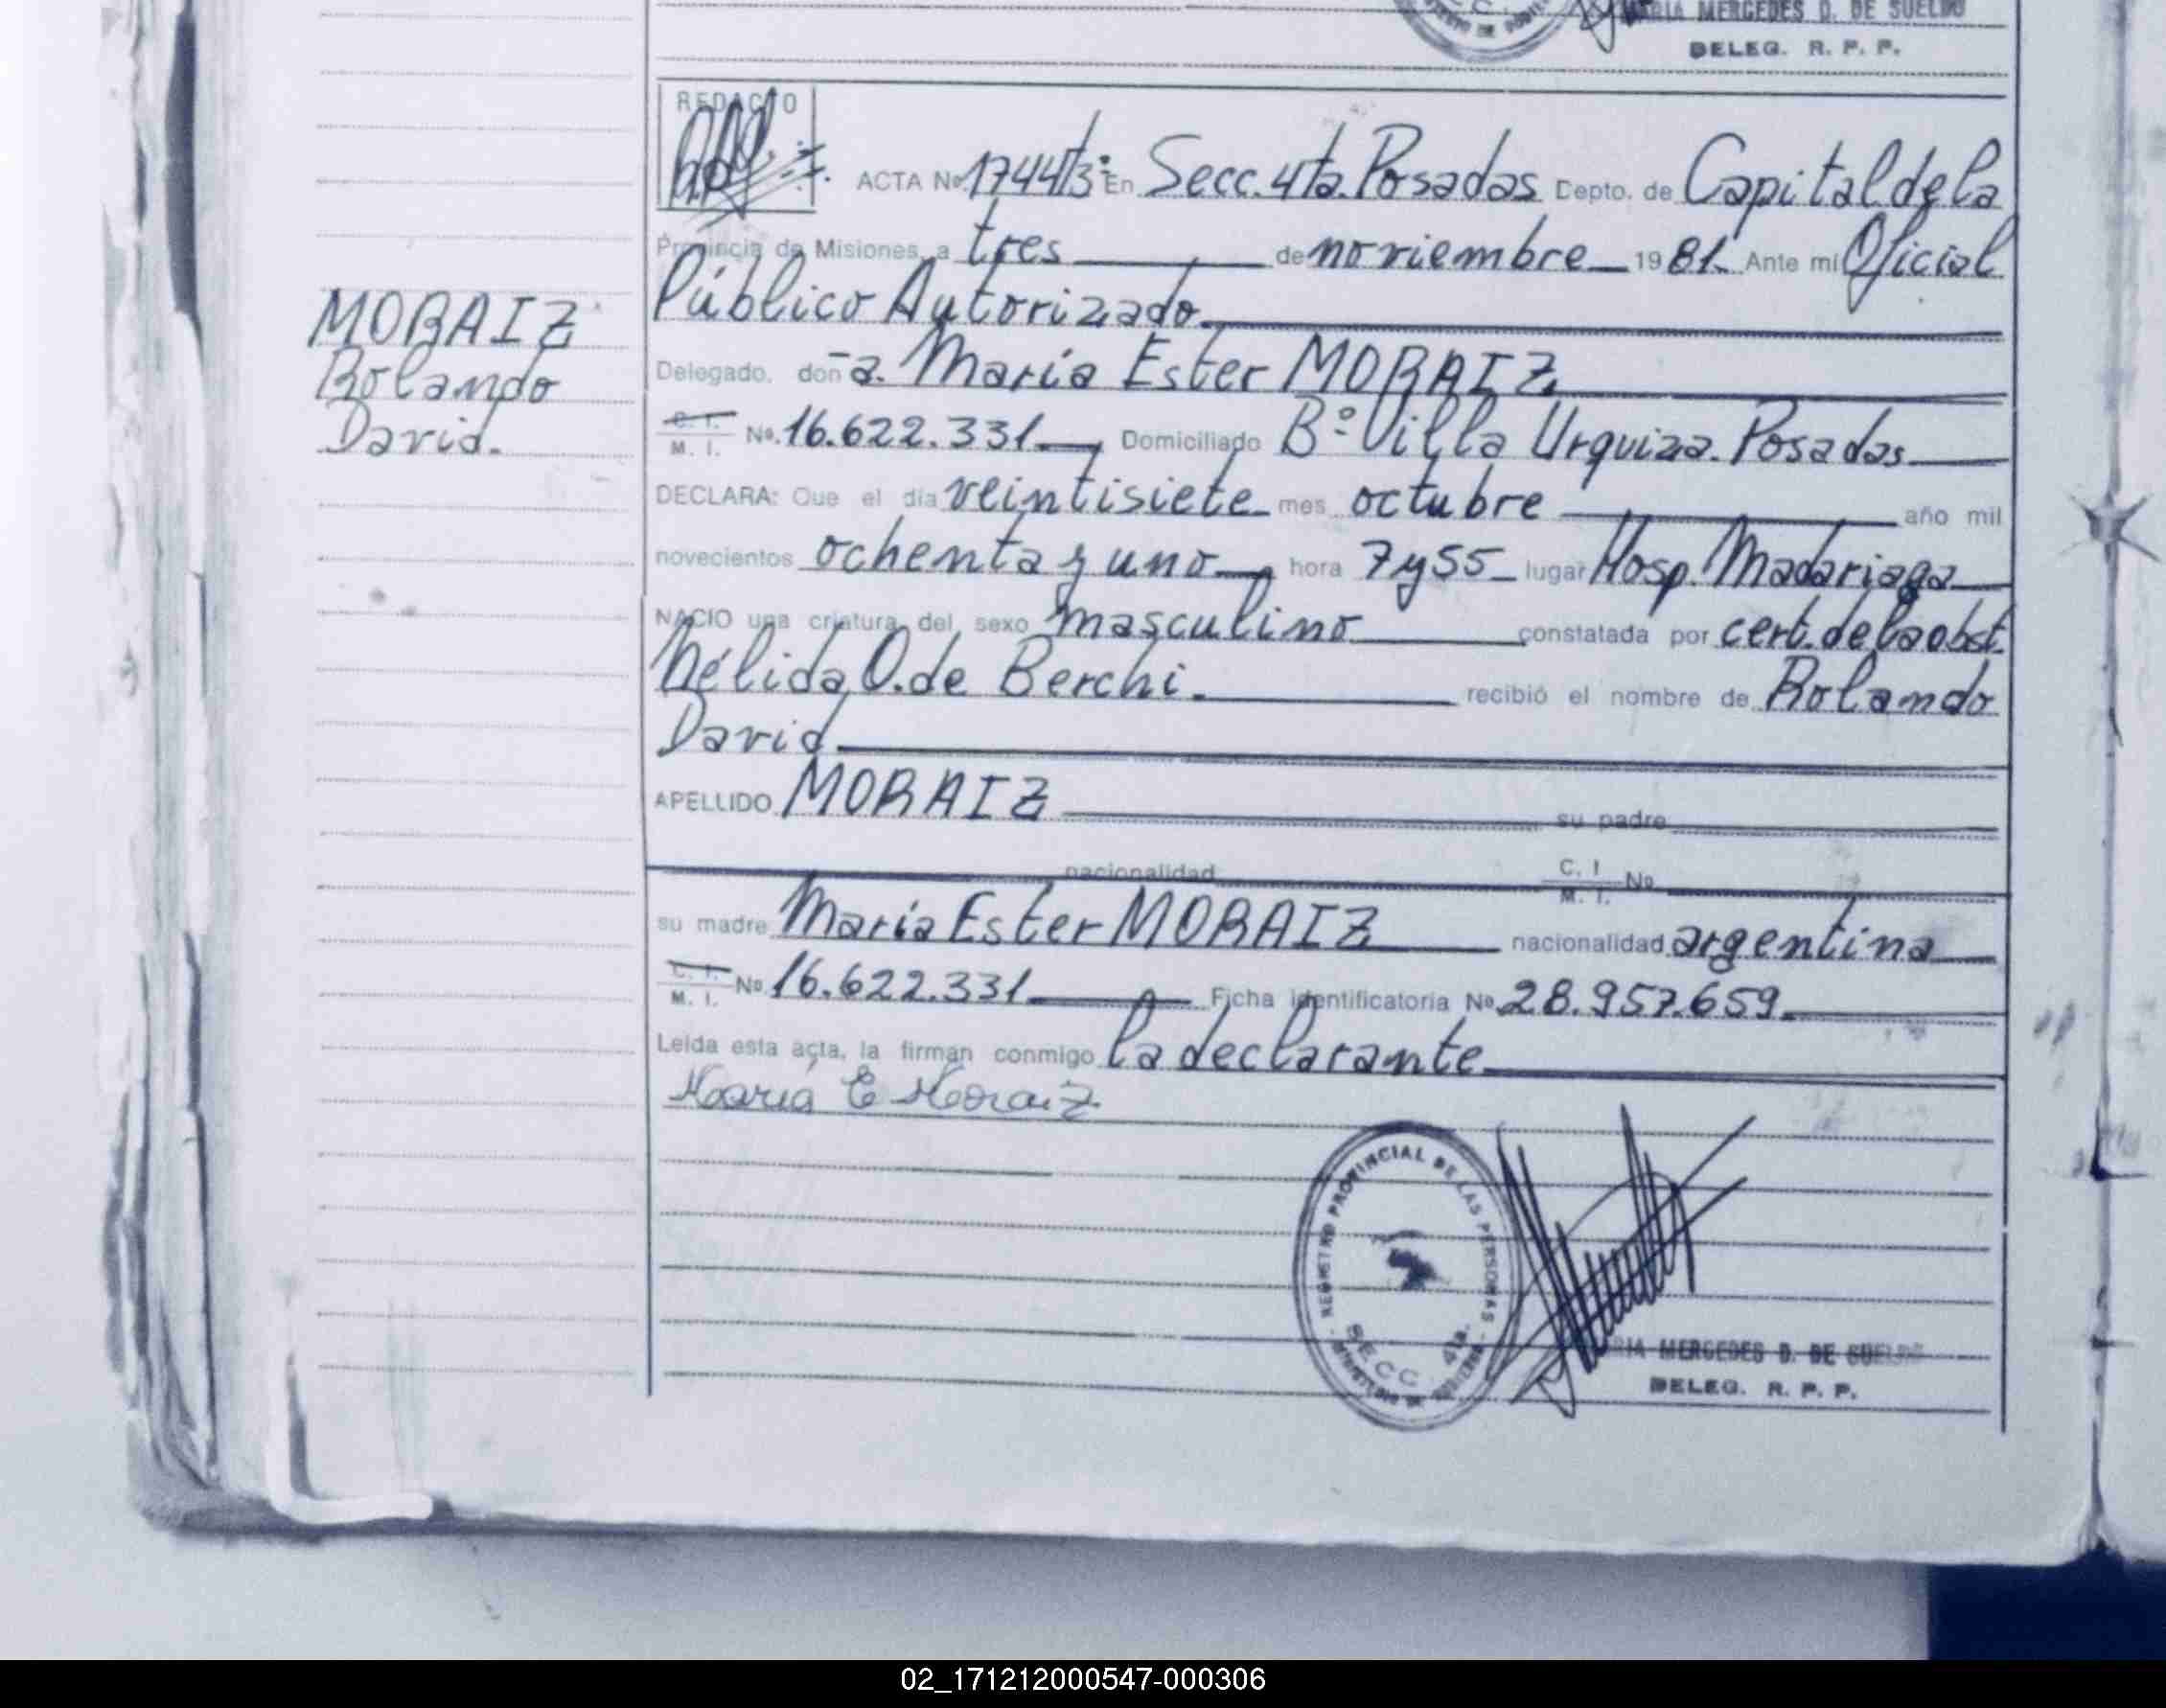 MARIA MERCEDES D. DE SUELDO
DELEG. R. P. P.
REDACTO
ACTA Nº 1744/T3: En Secc. 4ta. Posadas Depto. de Capital de la
Provincia de Misiones, a tres de noviembre 1981. Ante mi Oficial
Público Autorizado.
Delegado, doña. María Ester MORAIZ.
C. I. M. I. Nº. 16.622.331 Domiciliado Bº Villa Urquiza. Posadas
DECLARA: Que el día veintisiete mes octubre año mil
novecientos ochenta y uno hora 7 y 55 lugar Hosp. Madariaga
NACIO una criatura del sexo masculino constatada por cert. de la obst.
Nélida O. de Berchi. recibió el nombre de Rolando
David
APELLIDO MORAIZ su padre
nacionalidad C. I. M. I. Nº
su madre María Ester MORAIZ nacionalidad argentina
C. I. M. I. Nº 16.622.331 Ficha identificatoria Nº 28.957.659
Leída esta acta, la firman conmigo la declarante
Maria E Moraiz
MORAIZ
Rolando
David.
REGISTRO PROVINCIAL DE LAS PERSONAS
SECC 4ta.
MINISTERIO DE GOBIERNO
RIA MERCEDES D. DE SUELDO
DELEG. R. P. P.
02_171212000547-000306